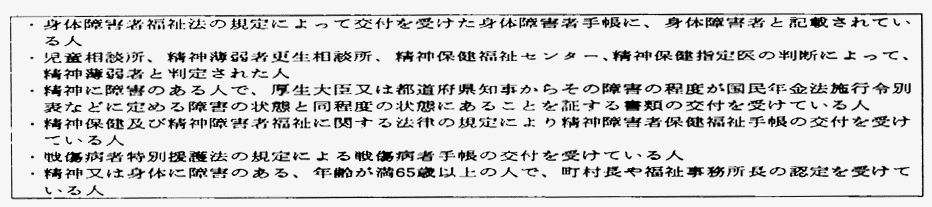 ・身体障害者福祉法の規定によって交付を受けた身体障害者手帳に、身体障害者と記載されてい
る人
・児童相談所、精神薄弱者更生相談所、精神保健福祉センター、精神保健指定医の判断によって、
精神薄弱者と判定された人
・精神に障害のある人で、厚生大臣又は都道府県知事からその障害の程度が国民年金法施行令別
表などに定める障害の状態と同程度の状態にあることを証する書類の交付を受けている人
・精神保健及び精神障害者福祉に関する法律の規定により精神障害者保健福祉手帳の交付を受け
ている人
・戦傷病者特別援護法の規定による戦傷病者手帳の交付を受けている人
・精神又は身体に障害のある、年齢が満65歳以上の人で、町村長や福祉事務所長の認定を受けて
いる人